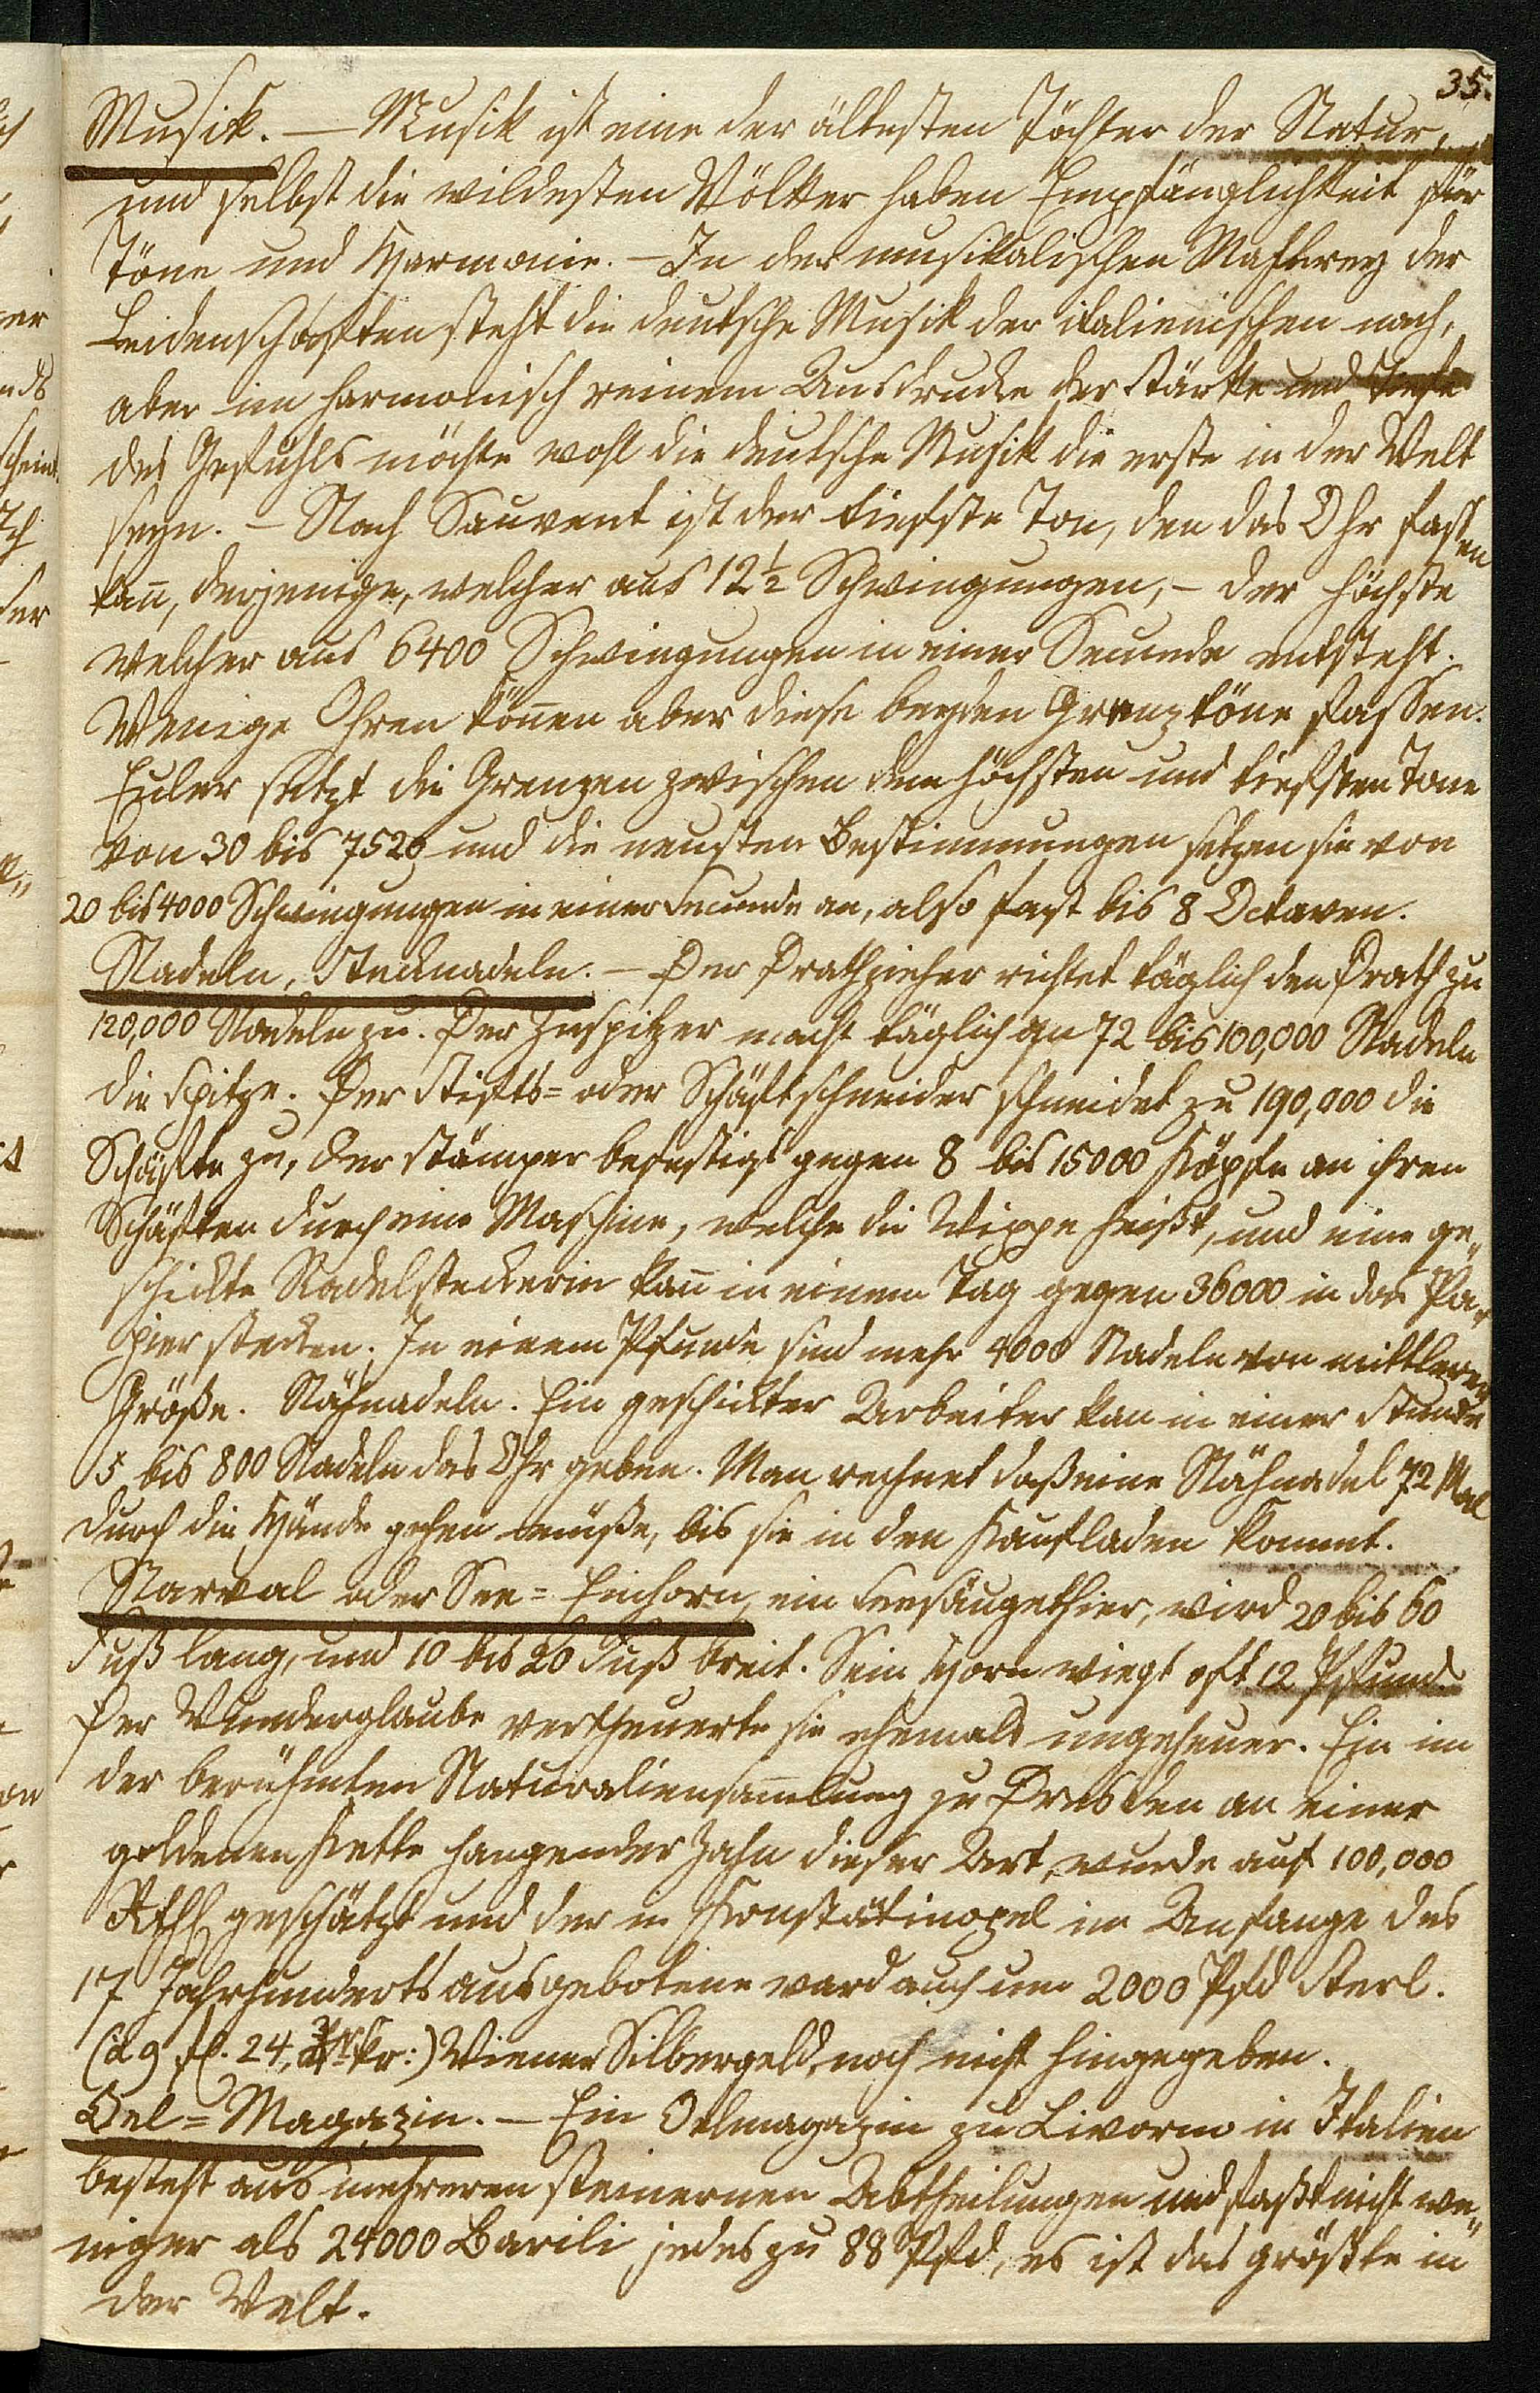 35.
Musik. — Musik ist eine der ältesten Töchter der Natur,
und selbst die wildesten Völker haben Empfänglichkeit für
Töne und Harmonie. — In der musikalischen Mahlerey der
Leidenschaften steht die deutsche Musik der italienischen nach,
aber im harmonisch reinem Ausdrucke der Stärke und Tiefe
des Gefühls möchte wohl die deutsche Musik die erste in der Welt
seyn. — Nach Sauvent ist der tiefste Ton, den das Ohr fassen
kan̄, derjenige, welcher aus 12½ Schwingungen, — der höchste
welcher aus 6400 Schwingungen in einer Secunde entsteht.
Wenige Ohren kön̄en aber diese beyden Grenztöne fassen.
Euler setzt die Grenzen zwischen dem höchsten und tiefsten Tone
von 30 bis 7520 und die neusten Bestimmungen setzen sie von
20 bis 4000 Schwingungen in einer Secunde an, also fast bis 8 Octaven.
Nadeln, Stecknadeln. — Der Drathzieher richtet täglich den Drath zu
120,000 Nadeln zu. Der Zuspitzer macht täglich an 72 bis 100,000 Nadeln
die Spitze. Der Stifts= oder Schäftschneider schneidet zu 190,000 die
Schäfte zu, der Stämper befestigt gegen 8 bis 15000 Köpfe an ihren
Schäften durch eine Maschine, welche die Wippe heißt, und eine ge„
schickte Nadelsteckerin kan̄ in einem Tag gegen 36000 in das Pa„
pier stecken. In einem Pfunde sind mehr 4000 Nadeln von mittlerer
Größe. Nähnadeln. Ein geschickter Arbeiter kan in einer Stunde
5 bis 800 Nadeln das Ohr geben. Man rechnet daß eine Nähnadel 72 Mal
durch die Hände gehen müße, bis sie in den Kaufladen kommt.
Narval oder See=Einhorn, ein Seesäugethier, wird 20 bis 60
Fuß lang, und 10 bis 20 Fuß breit. Sein Horn wiegt oft 12 Pfund
Der Wunderglaube vertheuerte sie ehemals ungeheuer. Ein im
der berühmten Naturaliensam̄lung zu Dresden an einer
goldenen Kette hangender Zahn dieser Art, wurde auf 100,000
Rthl geschätzt und der in Konstätinopel im Anfange des
17 Jahrhunderts ausgebotene ward auch um 2000 Pfd Sterl.
(à 9 fl. 24, kr:) Wiener Silbergeld, noch nicht hingegeben.
Oel=Magazin. — Ein Oelmagazin zu Livorno in Italien
besteht aus mehreren steinernen Abtheilungen und faßt nicht we„
niger als 24000 Barili jedes zu 88 Pfd, es ist das größte in
der Welt.